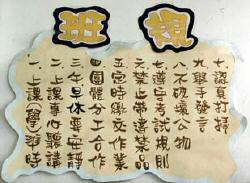 一、上課(學)準時
二、上課專心聽講
三、午休要安靜
四、團體分工合作
五、定時繳交作業
六、禁止帶違禁品
七、遵守考試規則
八、不破壞公物
九、舉手發言
認真打掃